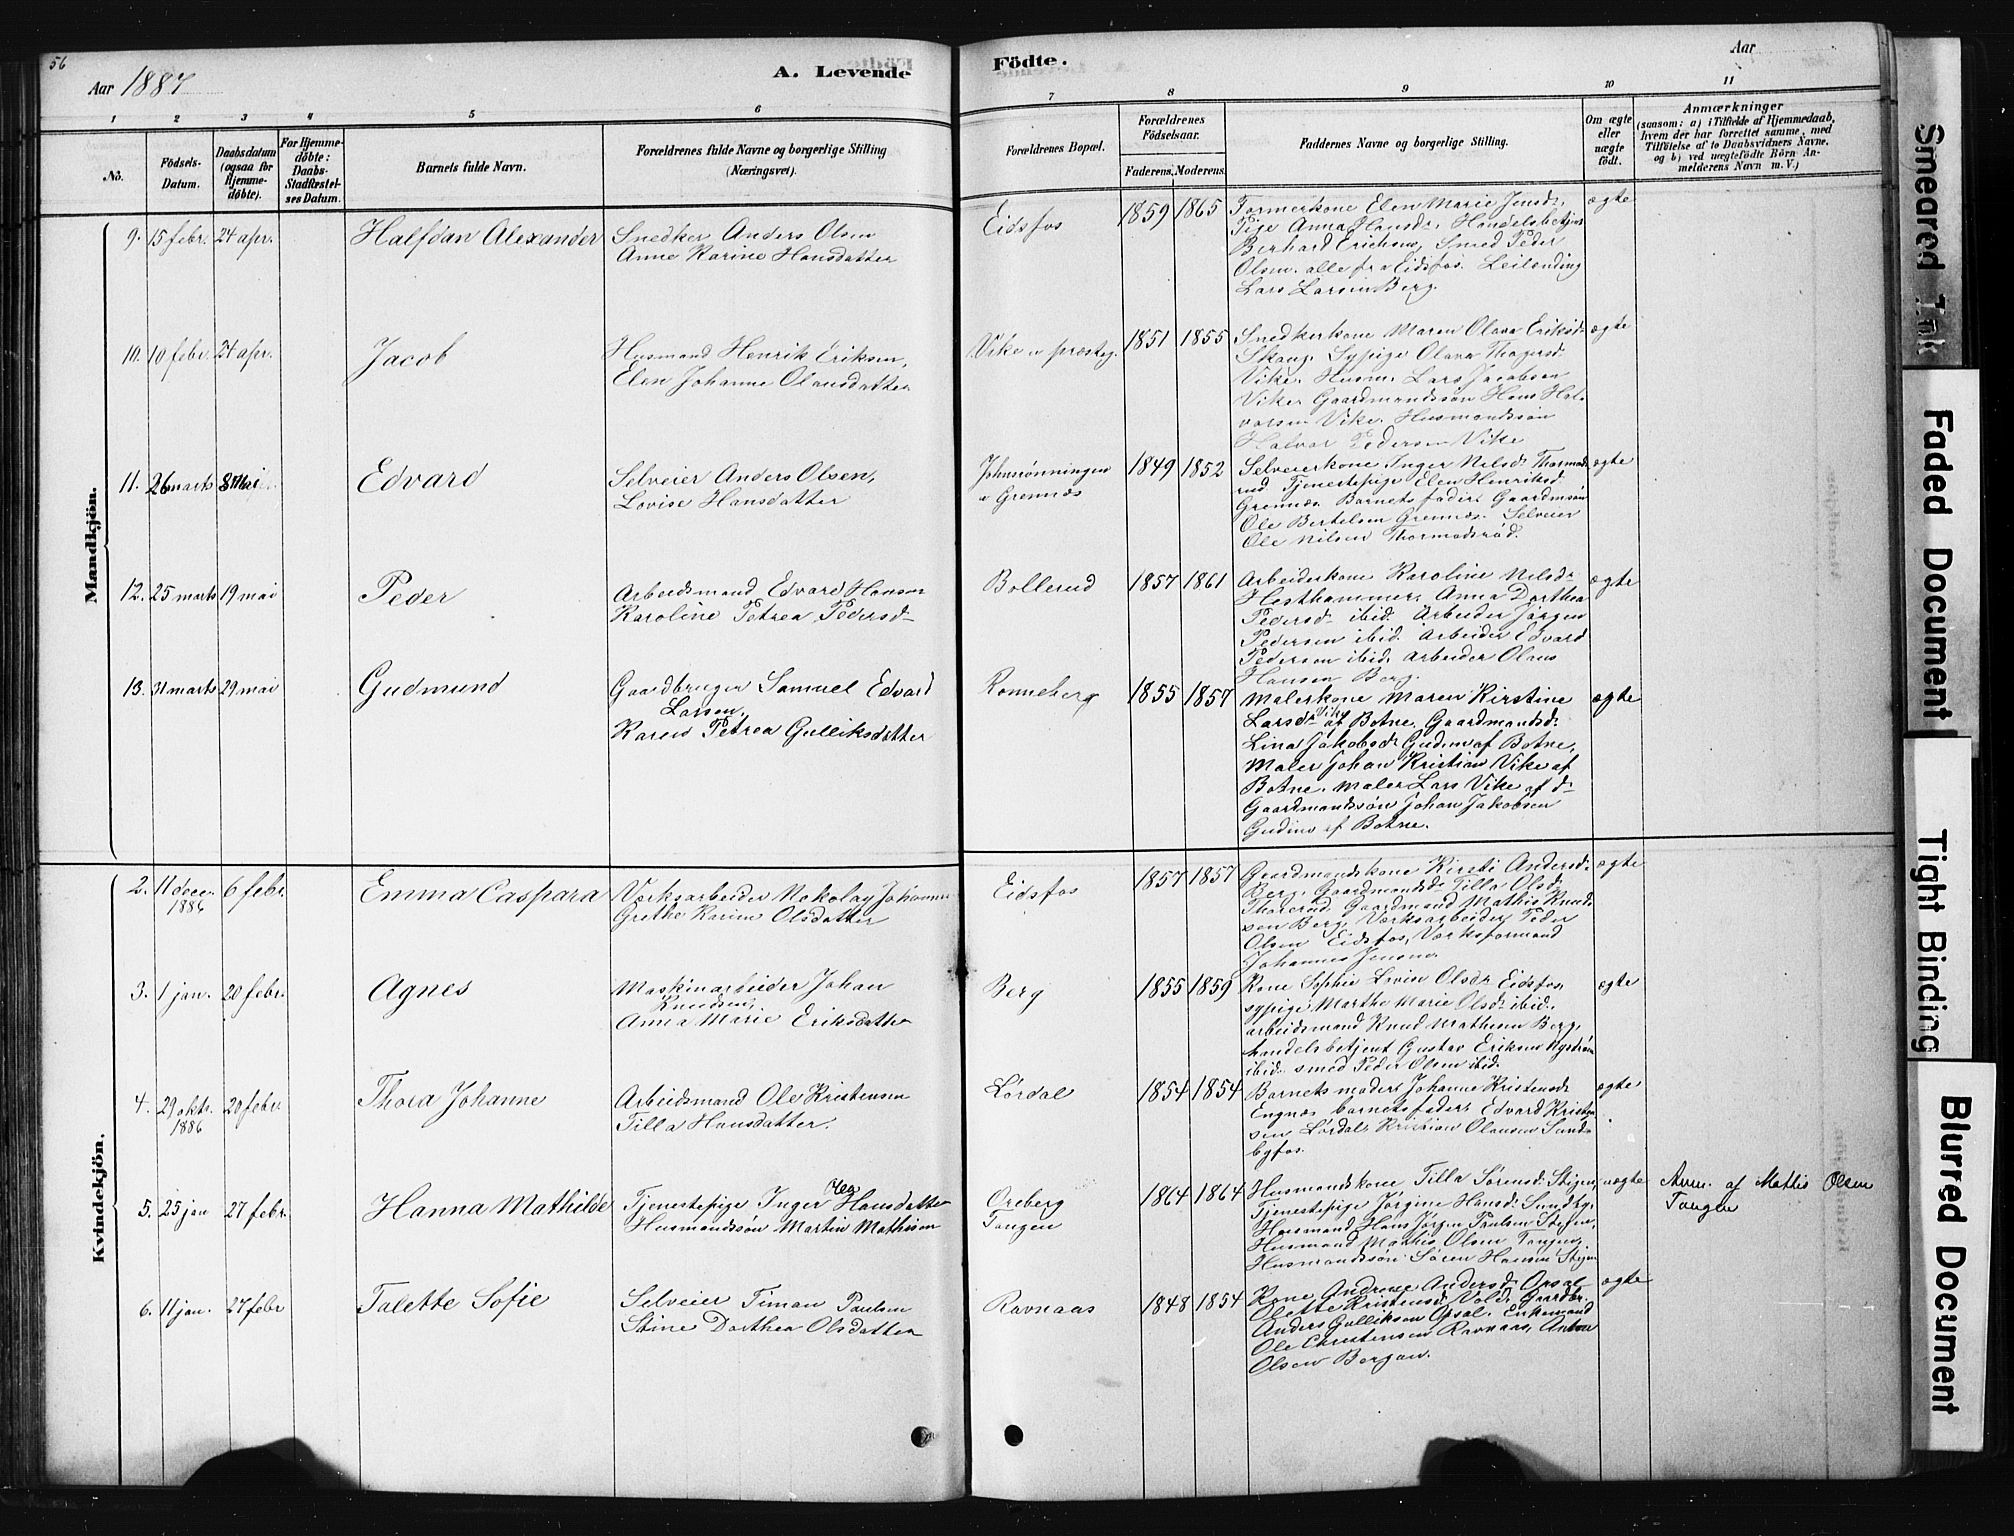 56
Aar 1887
A. Levende
Födte.
Aar
1 2 3 4 5 6 7 8 9 10 11
No.
Födsels-
Datum.
Daabsdatum
(ogsaa for
Hjemme-
døbte).
For Hjemme-
døbte:
Daabs-
Stadfæstel-
ses Datum.
Barnets fulde Navn.
Forældrenes fulde Navne og borgerlige Stilling
(Næringsvei).
Forældrenes Bopæl.
Forældrenes
Födselsaar.
Faderens. Moderens.
Faddernes Navne og borgerlige Stilling.
Om ægte
eller
uægte
født.
Anmærkninger
(saasom: a) i Tilfælde af Hjemmedaab,
hvem der har forrettet samme, med
Tilföielse af to Daabsvidners Navne,
og b) ved uægtefödte Börn An-
melderens Navn m. V.)
Mandkjön.
9. 15 febr. 24 apr.
Halfdan Alexander
Snedker Anders Olsen
Anne Karine Hansdatter
Eidsfos
1859 1865
Formerkone Elen Marie Jensdr,
Pige Anna Hansdr. Handelsbetjent
Berhard Erichsen, Smed Peder
Olsen. alle fra Eidsfos. Leilending
Lars Larsen Berg.
ægte
10. 10 febr. 24 apr.
Jacob
Husmand Henrik Eriksen,
Elen Johanne Olausdatter
Vike u præsteg.
1851 1855
Snedkerkone Maren Olava Eriksd-
Skaug. Sypige Olava Thagersd.
Vike. Husm. Lars Jacobsen
Vike. Gaardmandssøn Hans Hal-
vorsen Vike. Husmandssøn
Halvor Pedersen Vike
ægte
11. 26 marts 8 Mai
Edvard
Selveier Anders Olsen,
Lovise Hansdatter
Johnsrønningen
u Grennæs
1849 1852
Selveierkone Inger Nilsd. Thormods
rud Tjenestepige Elen Henriksd.
Grennæs Barnets fader. Gaardmsøn
Ole Bertelsen Grennæs. Selveier
Ole Nilsen Thormodsrød.
ægte
12. 25 marts 19 mai
Peder
Arbeidsmand Edvard Hansen
Karoline Petrea Pedersd-
Bollerud
1857 1861
Arbeiderkone Karoline Nilsdr
Hesthammer, Anna Dorthea
Pedersd- ibid. Arbeider Jørgen
Pedersen ibid. Arbeider Edvard
Pedersen ibid. Arbeider Olaus
Hansen Berg.
ægte
13. 31 marts 29 mai
Gudmund
Gaardbruger Samuel Edvard
Larsen,
Karen Petrea Gulliksdatter
Ronneberg
1855 1857
Malerkone Maren Kirstine
Larsdr Vike af Botne. Gaardmandsd.
Lina Jakobsdr Gudim af Botne,
Maler Johan Kristian Vike af
Botne. Maler Lars Vike af d-
Gaardmandssøn Johan Jakobsen
Gudim af Botne.
ægte
Kvindekjön.
2. 11 dece. 1886 6 febr.
Emma Caspara
Værksarbeider Nokolay Johannesen
Grethe Karine Olsdatter
Eidsfos
1857 1857
Gaardmandskone Kirsti Andersd.
Berg, Gaardmandsd. Tilla Olsdr
Thorerud. Gaardmand Mathis Knud
sen Berg, Værksarbeider Peder
Olsen Eidsfos, Værksformand
Johannes Jensen.
ægte
3. 1 jan. 20 febr.
Agnes
Maskinarbeider Johan
Knudsen,
Anna Marie Eriksdatter
Berg
1855 1859
Kone Sophie Lovise Olsdr Eidsfos,
sypige Marthe Marie Olsdr ibid.
arbeidsmand Knud Mathisen Berg,
handelsbetjent Gustav Eriksen Nystrøm
ibid. smed Peder Olsen ibid.
ægte
4. 29 okts. 1886 20 febr.
Thora Johanne
Arbeidsmand Ole Kristensen
Tilla Hansdatter.
Lørdal
1854 1854
Barnets moder, Johanne Kristensd.
Engnæs barnets fader, Edvard Kristen
sen Lørdal, Kristian Olausen Sund-
byfos.
ægte
5. 25 jan 27 febr.
Hanna Mathilde
Tjenestepige Inger Olea Hansdatter
Husmandssøn Martin Mathisen
Oreberg
Tangen
1864 1864
Husmandskone Tilla Sørensd. Stigen,
Tjenestepige Jørgine Hansd. Sundby,
Husmand Hans Jørgen Paulsen Stigen,
Husmand Mathis Olsen Tangen,
Husmandssøn Søren Hansen Stigen
uægte
Anm. af Mathis Olsen
Tangen
6. 11 jan. 27 febr
Talette Sofie
Selveier Timan Paulsen
Stine Dorthea Olsdatter
Ravnaas
1848 1854
Kone Andrene Andersd. Orsal
Olette Kristensd. Vold. Gaardbr.
Anders Gulliksen Orsal. Enkemand
Ole Christensen Ravnaas, Anton
Olsen Bergan.
ægte
Smeared Ink
Faded Document
Tight Binding
Blurred Document